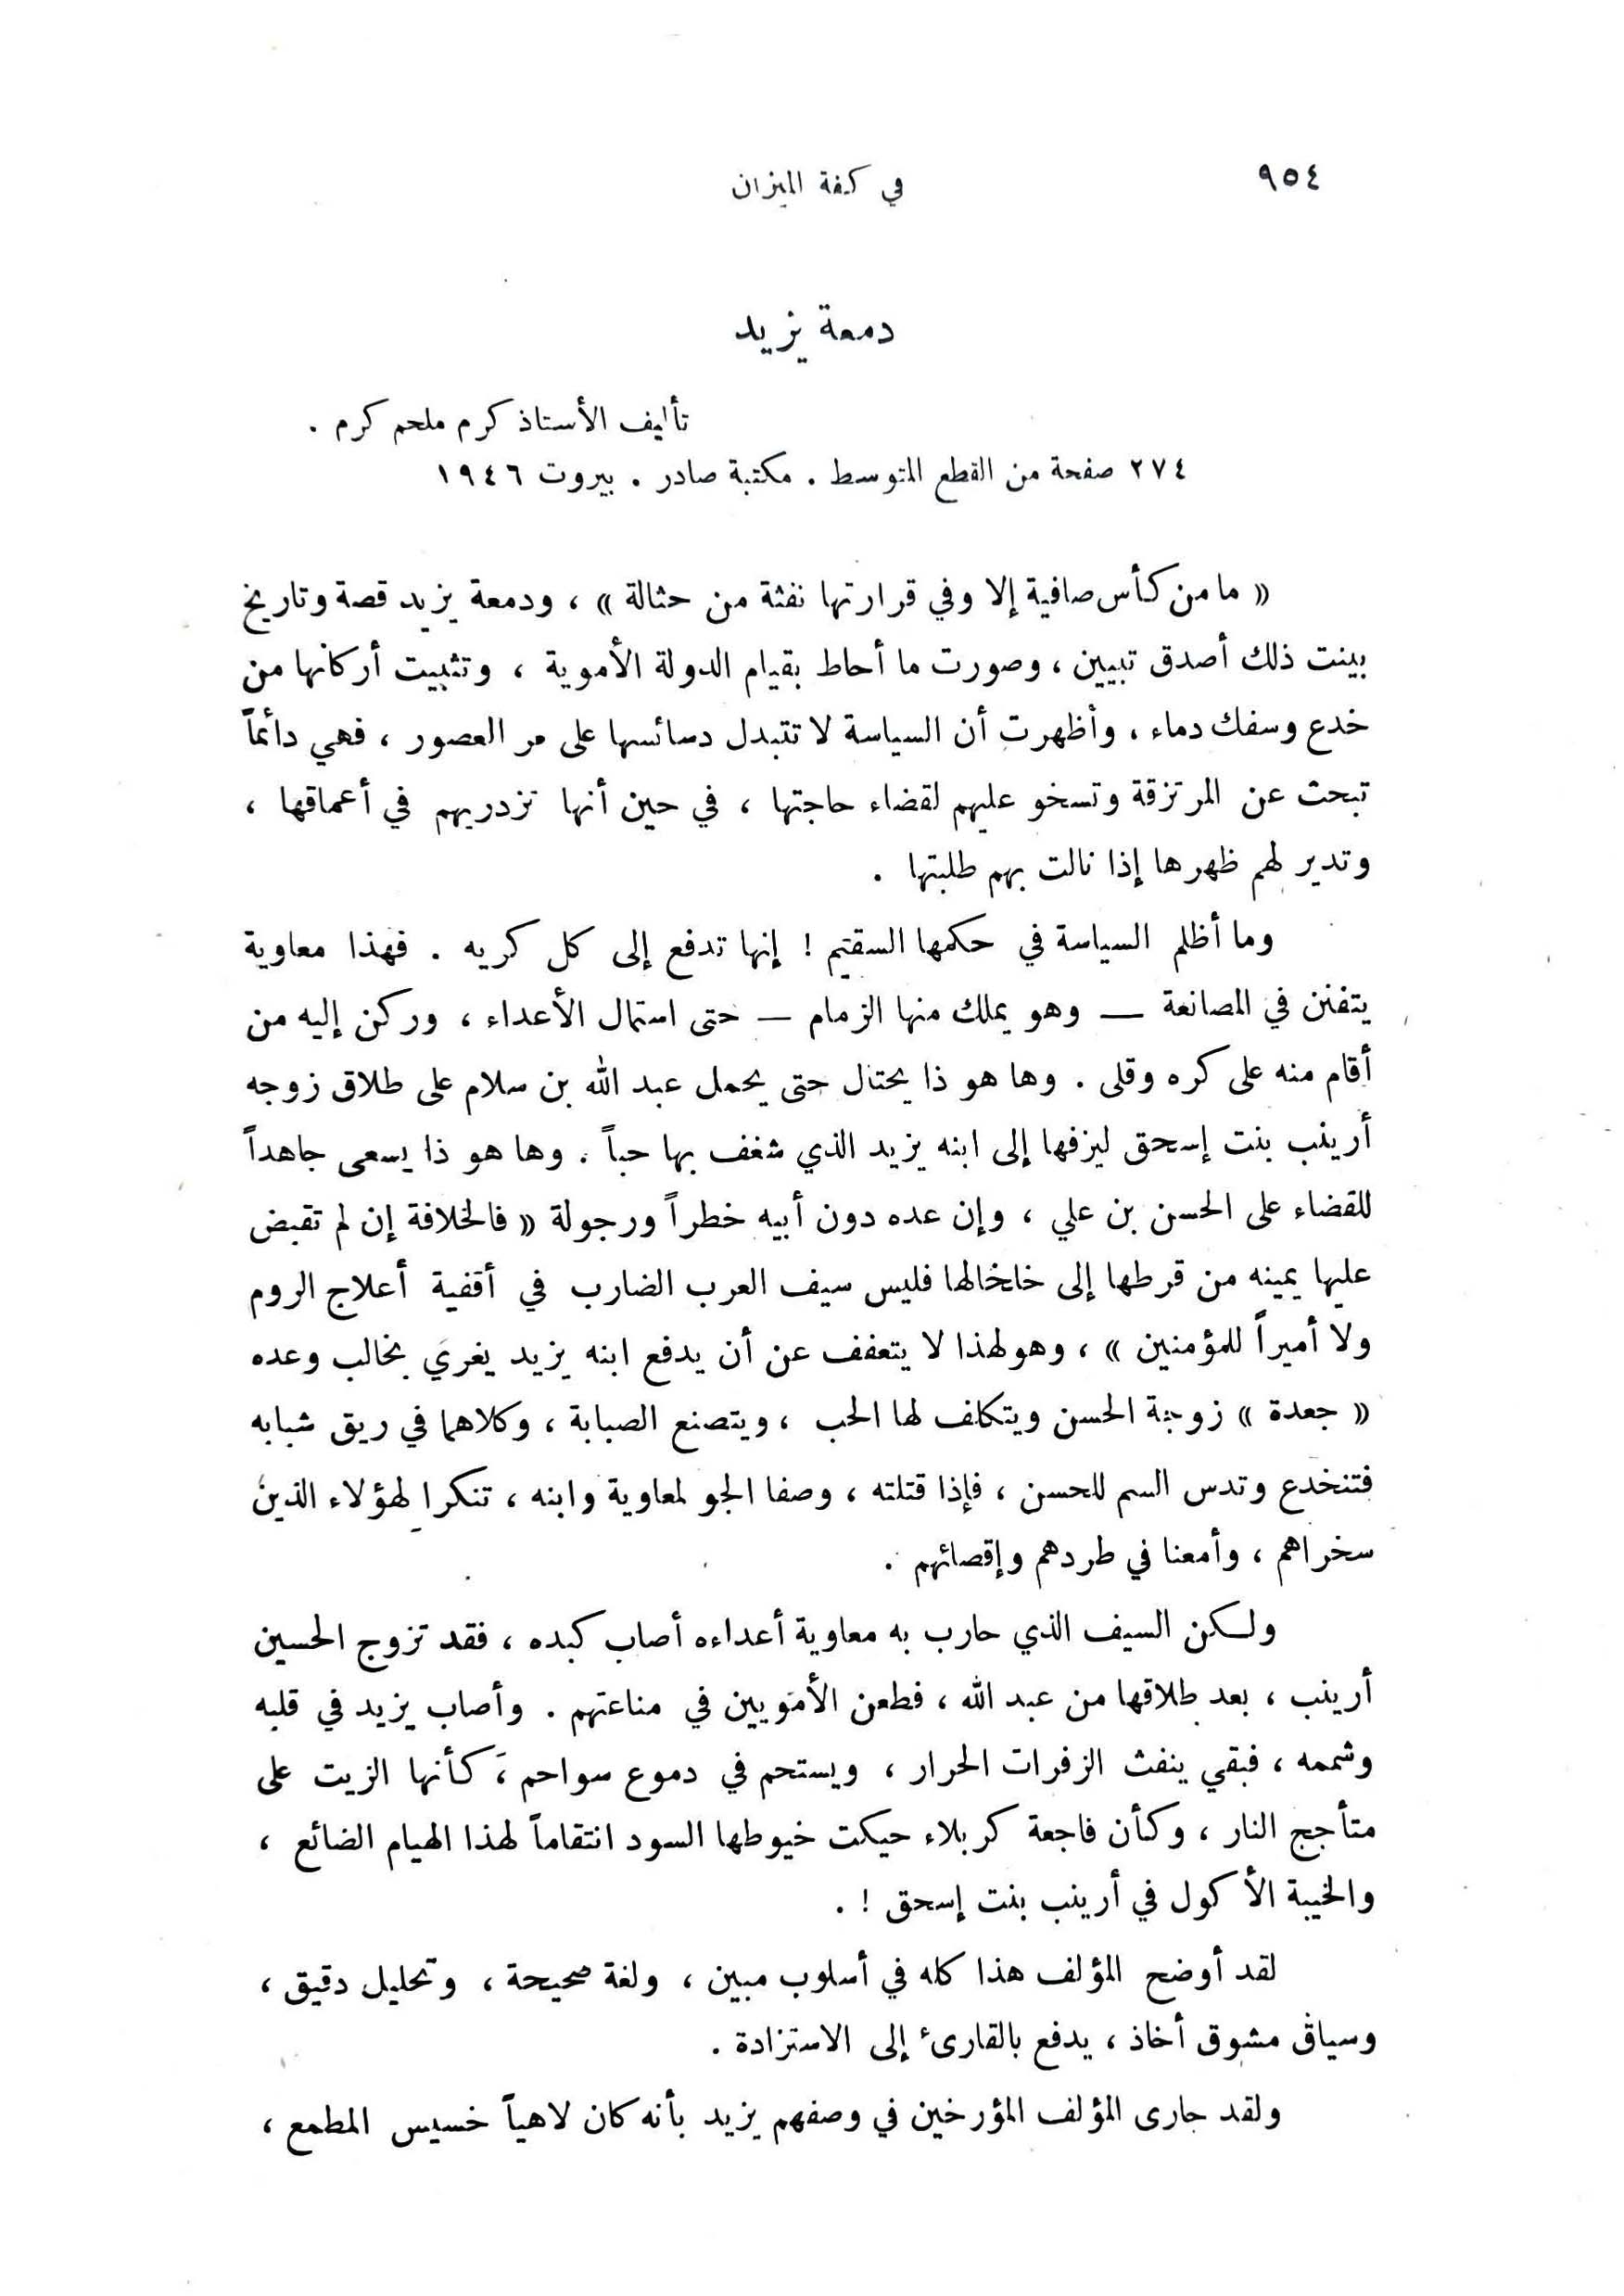 ٩٥٤
في كفة الميزان
دمعة يزيد
تأليف الأستاذ كرم ملحم كرم .
٢٧٤ صفحة من القطع المتوسط . مكتبة صادر . بيروت ١٩٤٦
« ما من كأس صافية إلا وفي قرارتها نفثة من حثالة » ، ودمعة يزيد قصة وتاريخ
بينت ذلك أصدق تبيين ، وصورت ما أحاط بقيام الدولة الأموية ، وتثبيت أركانها من
خدع وسفك دماء ، وأظهرت أن السياسة لا تتبدل دسائسها على مر العصور ، فهي دائماً
تبحث عن المرتزقة وتسخو عليهم لقضاء حاجتها ، في حين أنها تزدريهم في أعماقها ،
وتدير لهم ظهرها إذا نالت بهم طلبتها .
وما أظلم السياسة في حكمها السقيم ! إنها تدفع إلى كل كريه . فهذا معاوية
يتفنن في المصانعة — وهو يملك منها الزمام — حتى استمال الأعداء ، وركن إليه من
أقام منه على كره وقلى . وها هو ذا يحتال حتى يحمل عبد الله بن سلام على طلاق زوجه
أرينب بنت إسحق ليزفها إلى ابنه يزيد الذي شغف بها حباً . وها هو ذا يسعى جاهداً
للقضاء على الحسن بن علي ، وإن عده دون أبيه خطراً ورجولة « فالخلافة إن لم تقبض
عليها يمينه من قرطها إلى خلخالها فليس سيف العرب الضارب في أقفية أعلاج الروم
ولا أميراً للمؤمنين » ، وهو لهذا لا يتعفف عن أن يدفع ابنه يزيد يغري بخالب وعده
« جعدة » زوجة الحسن ويتكلف لها الحب ، ويتصنع الصبابة ، وكلاهما في ريق شبابه
فتنخدع وتدس السم للحسن ، فإذا قتلته ، وصفا الجو لمعاوية وابنه ، تنكرا لهؤلاء الذين
سخراهم ، وأمعنا في طردهم وإقصائهم .
ولكن السيف الذي حارب به معاوية أعداءه أصاب كبده ، فقد تزوج الحسين
أرينب ، بعد طلاقها من عبد الله ، فطعن الأمويين في مناعتهم . وأصاب يزيد في قلبه
وشممه ، فبقي ينفث الزفرات الحرار ، ويستحم في دموع سواحم ، كأنها الزيت على
متأجج النار ، وكأن فاجعة كربلاء حيكت خيوطها السود انتقاماً لهذا الهيام الضائع ،
والخيبة الأكول في أرينب بنت إسحق ! .
لقد أوضح المؤلف هذا كله في أسلوب مبين ، ولغة صحيحة ، وتحليل دقيق ،
وسياق مشوق أخاذ ، يدفع بالقارئ إلى الاستزادة .
ولقد جارى المؤلف المؤرخين في وصفهم يزيد بأنه كان لاهياً خسيس المطمع ،